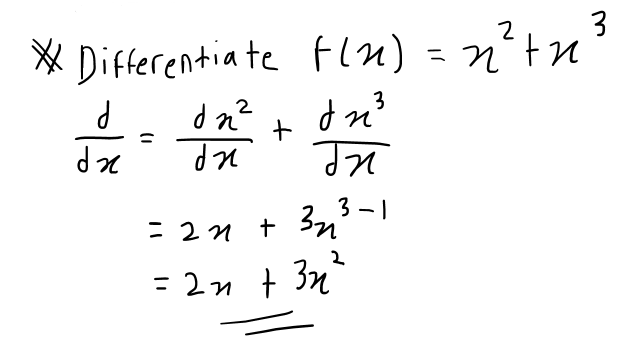 ※ Differentiate f(x) = x² + x³
d/dx = dx²/dx + dx³/dx
= 2x + 3x³⁻¹
= 2x + 3x²